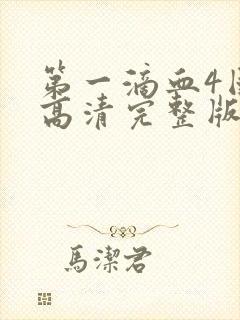 第一滴血4
高清完整版
馬潔君